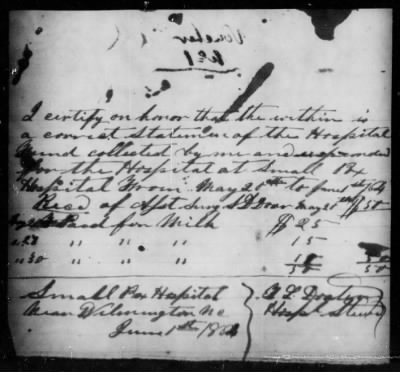 Voucher
No 1
I certify on honor that the within is
a correct Statement of the Hospital
Fund collected by me and expended
for the Hospital at Small Pox
Hospital From May 20th to June 1st /64
Recd of Asst Surg May 20th $50
Paid for Milk $25
" " " 15
" 30 " " " 10 50
50 50
Small Pox Hospital
near Wilmington NC
June 1th 1864
Hospl Steward